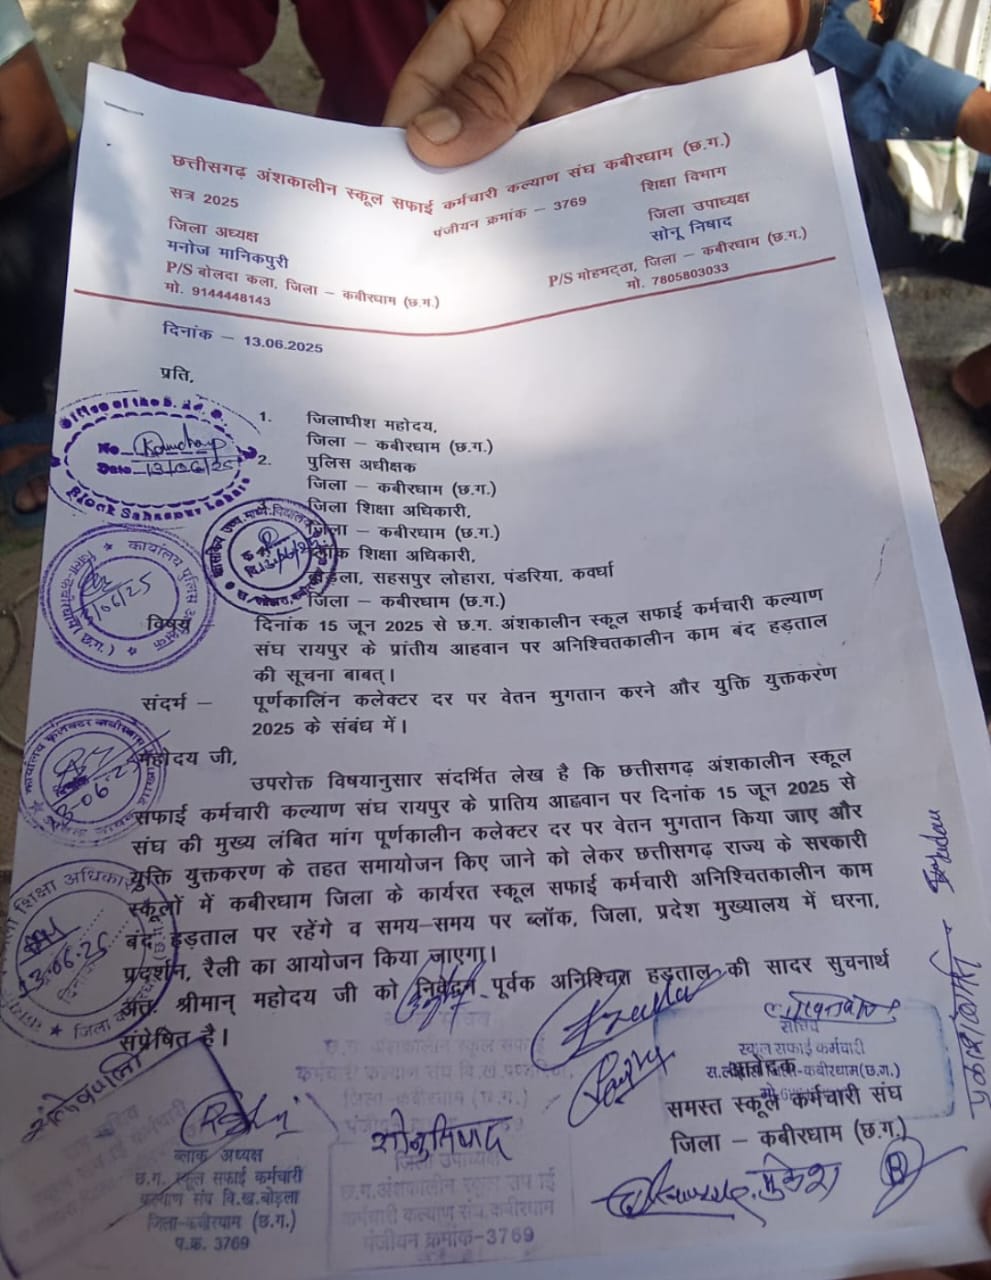 छत्तीसगढ़ अंशकालीन स्कूल सफाई कर्मचारी कल्याण संघ कबीरधाम (छ.ग.)
सत्र 2025
पंजीयन क्रमांक – 3769
शिक्षा विभाग
जिला अध्यक्ष
मनोज मानिकपुरी
P/S बोलदा कला, जिला – कबीरधाम (छ.ग.)
मो. 9144448143
जिला उपाध्यक्ष
सोनू निषाद
P/S मोहमट्ठा, जिला – कबीरधाम (छ.ग.)
मो. 7805803033
दिनांक – 13.06.2025
प्रति,
1. जिलाधीश महोदय,
जिला – कबीरधाम (छ.ग.)
2. पुलिस अधीक्षक
जिला – कबीरधाम (छ.ग.)
जिला शिक्षा अधिकारी,
जिला – कबीरधाम (छ.ग.)
शिक्षा अधिकारी,
सहसपुर लोहारा, पंडरिया, कवर्धा
जिला – कबीरधाम (छ.ग.)
Office of the
No
Date 13/06/25
Block Sahaspur Lohara
विषय दिनांक 15 जून 2025 से छ.ग. अंशकालीन स्कूल सफाई कर्मचारी कल्याण
संघ रायपुर के प्रांतीय आहवान पर अनिश्चितकालीन काम बंद हड़ताल
की सूचना बाबत्।
संदर्भ – पूर्णकालिन कलेक्टर दर पर वेतन भुगतान करने और युक्ति युक्तकरण
2025 के संबंध में।
महोदय जी,
उपरोक्त विषयानुसार संदर्भित लेख है कि छत्तीसगढ़ अंशकालीन स्कूल
सफाई कर्मचारी कल्याण संघ रायपुर के प्रातिय आहवान पर दिनांक 15 जून 2025 से
संघ की मुख्य लंबित मांग पूर्णकालीन कलेक्टर दर पर वेतन भुगतान किया जाए और
युक्ति युक्तकरण के तहत समायोजन किए जाने को लेकर छत्तीसगढ़ राज्य के सरकारी
स्कूलों में कबीरधाम जिला के कार्यरत स्कूल सफाई कर्मचारी अनिश्चितकालीन काम
बंद हड़ताल पर रहेंगे व समय–समय पर ब्लॉक, जिला, प्रदेश मुख्यालय में धरना,
प्रदर्शन, रैली का आयोजन किया जाएगा।
अतः श्रीमान् महोदय जी को निवेदन पूर्वक अनिश्चित हड़ताल की सादर सुचनार्थ
संप्रेषित है।
सचिव
स्कूल सफाई कर्मचारी
जिला-कबीरधाम(छ.ग.)
आवेदक
समस्त स्कूल कर्मचारी संघ
जिला – कबीरधाम (छ.ग.)
मुकेश
सोनु निषाद
ब्लाक अध्यक्ष
छ.ग. स्कूल सफाई कर्मचारी
कल्याण संघ वि.ख.बोड़ला
जिला-कबीरधाम (छ.ग.)
प.क्र. 3769
जिला उपाध्यक्ष
छ.ग.अंशकालीन स्कूल सफाई
कर्मचारी कल्याण संघ.कबीरधाम
पंजीयन क्रमांक-3769